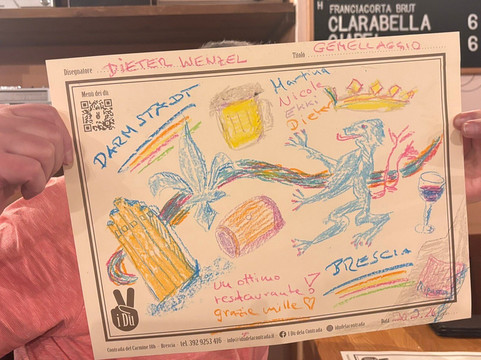 FRANCIACORTA BRUT
CLARABELLA 6
6
Disegnatore DIETER WENZEL
Titolo GEMELLAGGIO
Menù dei dù
DARMSTADT
Martina
Nicole
Ekki
Dieter
BRESCIA
un ottimo
restaurante!
grazie mille
i Dù
Contrada del Carmine 18b - Brescia
tel. 392 9253 416
I Dù della Contrada
Data